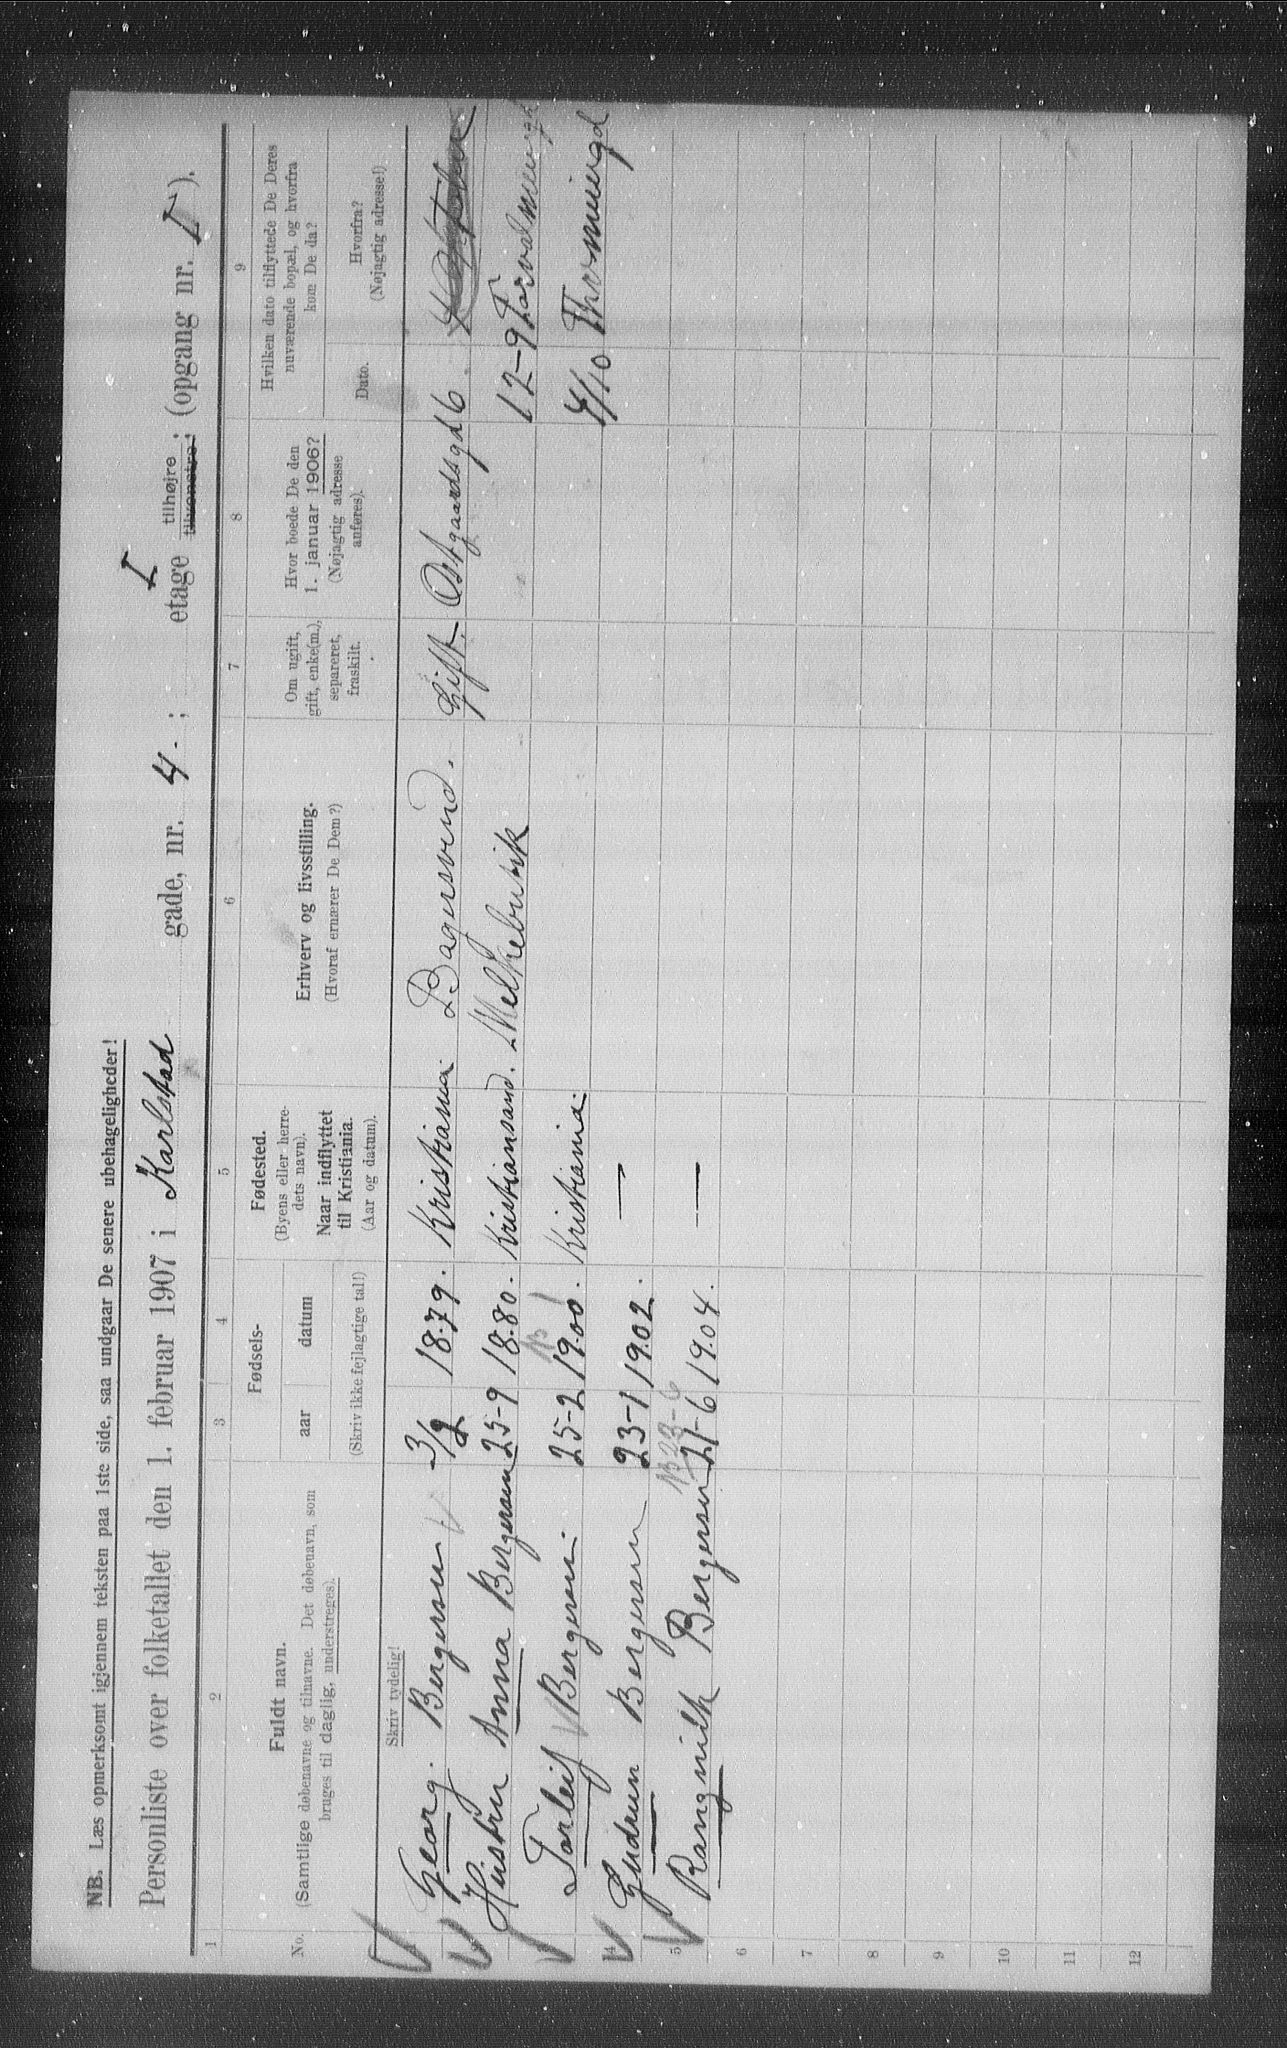 NB. Læs opmerksomt igjennem teksten paa 1ste side, saa undgaar De senere ubehageligheder!
Personliste over folketallet den 1. februar 1907 i Karlstad gade, nr. 4. ; I etage tilhøjre tilvenstre ; (opgang nr. I ).
1 2 3 4 5 6 7 8 9
No.
Fuldt navn.
(Samtlige døbenavne og tilnavne. Det døbenavn, som
bruges til daglig, understreges).
Fødsels-
aar datum
(Skriv ikke fejlagtige tal!)
Fødested.
(Byens eller herre-
dets navn).
Naar indflyttet
til Kristiania.
(Aar og datum).
Erhverv og livsstilling.
(Hvoraf ernærer De Dem?)
Om ugift,
gift, enke(m.),
separeret,
fraskilt.
Hvor boede De den
1. januar 1906?
(Nøjagtig adresse
anføres).
Hvilken dato tilflyttede De Deres
nuværende bopæl, og hvorfra
kom De da?
Dato.
Hvorfra?
(Nøjagtig adresse!)
Skriv tydelig!
Georg. Bergersen 3/2 18.79. Kristiania Bagersvend. Gift Østgaardsgd 6.
Hustru Anna Bergersen 25-9 18.80. Kristiansand. Melkebutik 12-9
3 Torleif Bergersen 25-2 19.00. Kristiania. 4/10
4 Gudrun Bergersen 23-1 19.02. —
23-6
5 Rangnilh Bergersen 21-6 19.04. —
6
7
8
9
10
11
12